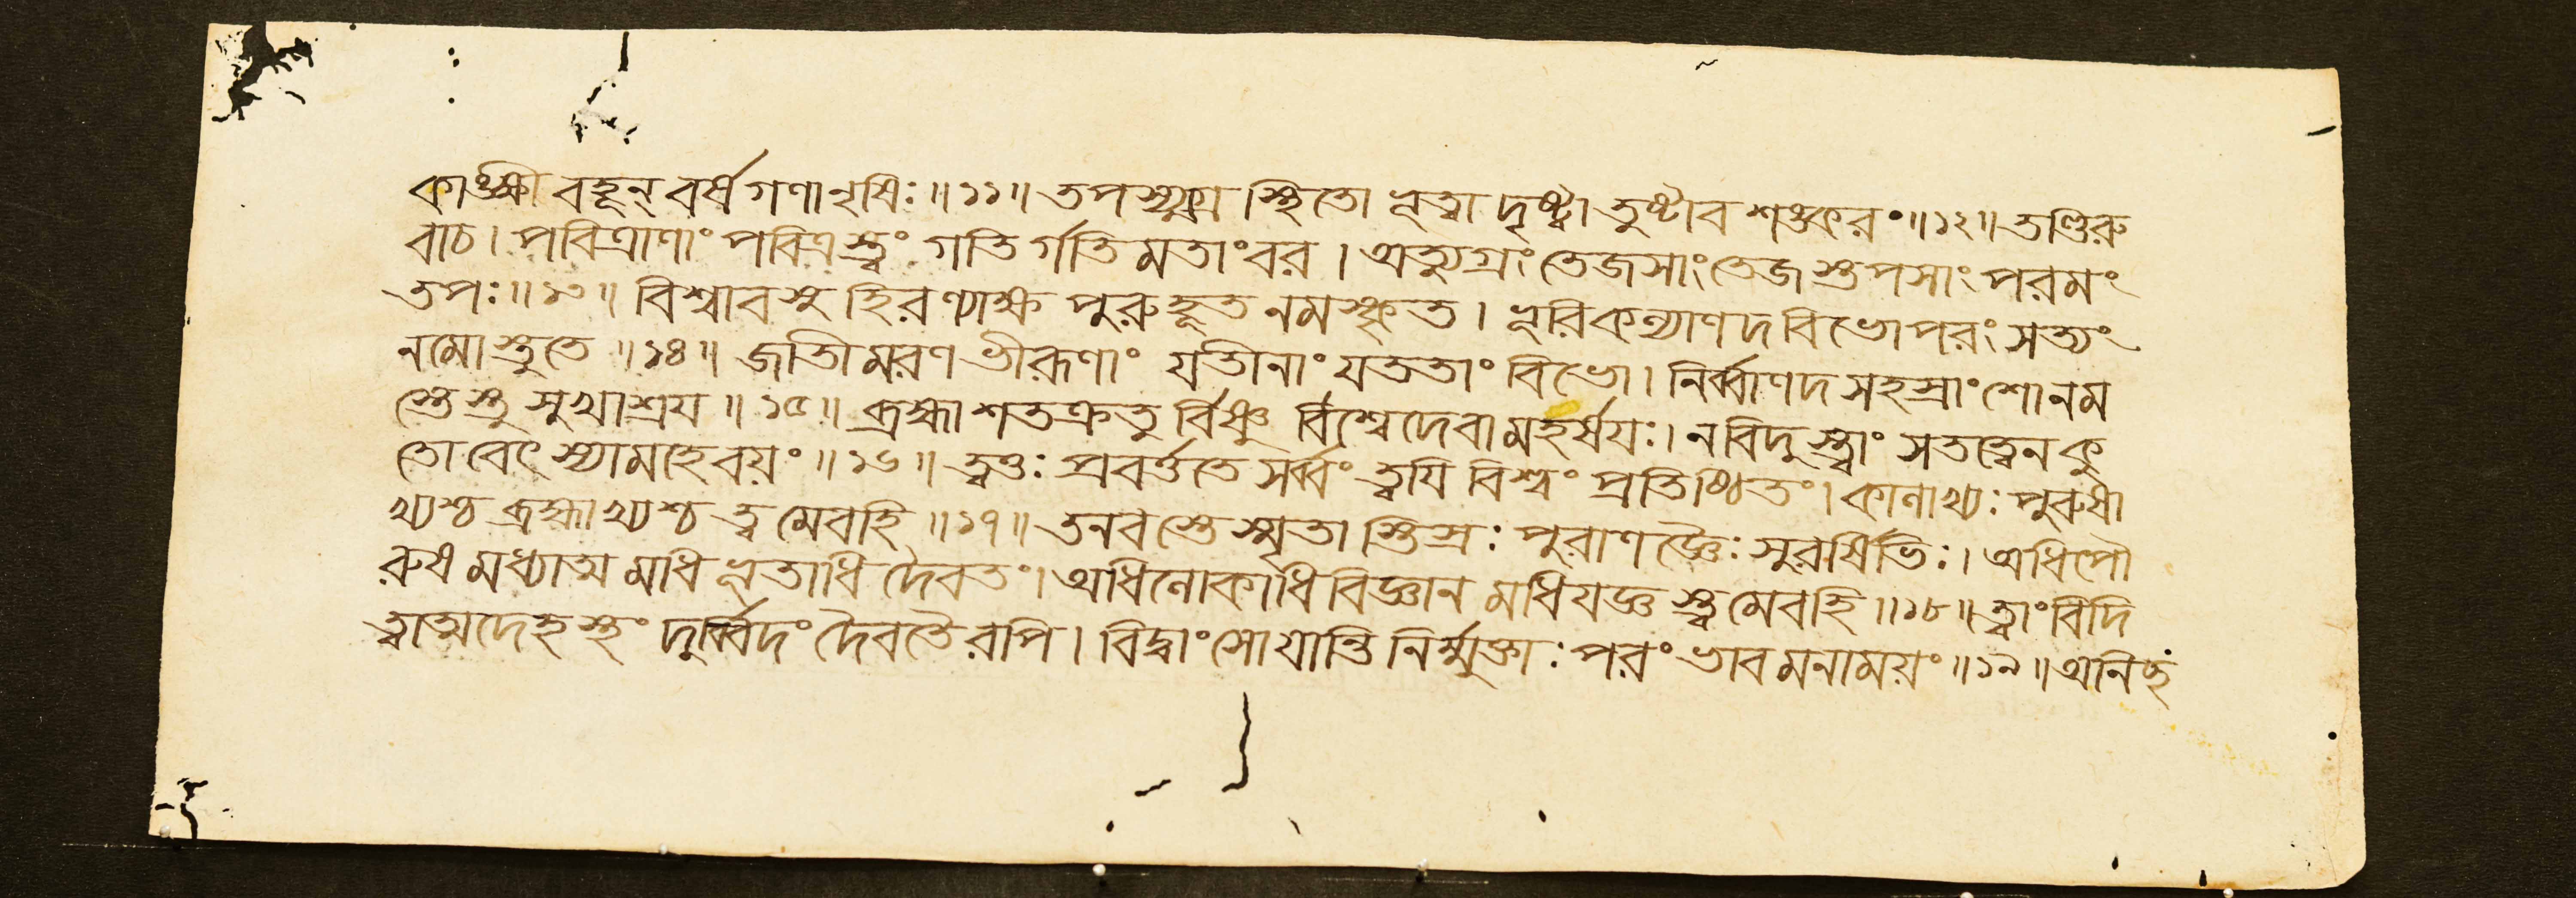 কাঙ্ক্ষী বহূন্ বর্ষগণানৃষিঃ॥১১॥ তপস্যুগ্র স্থিতো ভূত্বা দৃষ্ট্বা তুষ্টাব শঙ্করং॥১২॥ তণ্ডিরু
বাচ। পবিত্রাণাং পবিত্রস্ত্বং গতির্গতিমতাংবর। অত্যুগ্রং তেজসাং তেজস্তপসাং পরমং
তপঃ॥১৩॥ বিশ্বাবসু হিরণ্যাক্ষ পুরুহূত নমস্কৃত। ভূরিকল্যাণদ বিভো পরং সত্যং
নমোস্তুতে॥১৪॥ জাতীমরণভীরূণাং যতীনাং যততাং বিভো। নির্ব্বাণদ সহস্রাংশো নম
স্তেস্তু সুখাশ্রয॥১৫॥ ব্রহ্মা শতক্রতুর্বিষ্ণু র্বিশ্বেদেবা মহর্ষযঃ। ন বিদুস্ত্বাং সতত্বেন কু
তো বেৎস্যামহে বয়ং॥১৬॥ ত্বত্তঃ প্রবর্ত্ততে সর্ব্বং ত্বযি বিশ্বং প্রতিষ্ঠিতং। কালাখ্যঃ পুরুষা
খ্যশ্চ ব্রহ্মাখ্যশ্চ ত্বমেবহি॥১৭॥ তনবস্তে স্মৃতাস্তিস্রঃ পুরাণজ্ঞৈঃ সুরর্ষিভিঃ। অধিপৌ
রুষমধ্যাত্মমধিভূতাধিদৈবতং। অধিলোকাধিবিজ্ঞানমধিযজ্ঞস্ত্বমেবহি॥১৮॥ ত্বাং বিদি
ত্বাত্মদেহস্থং দুর্ব্বিদং দৈবতৈরপি। বিদ্বাংসো যান্তি নির্ম্মুক্তাঃ পরং ভাবমনাময়ং॥১৯॥ অনিচ্ছ